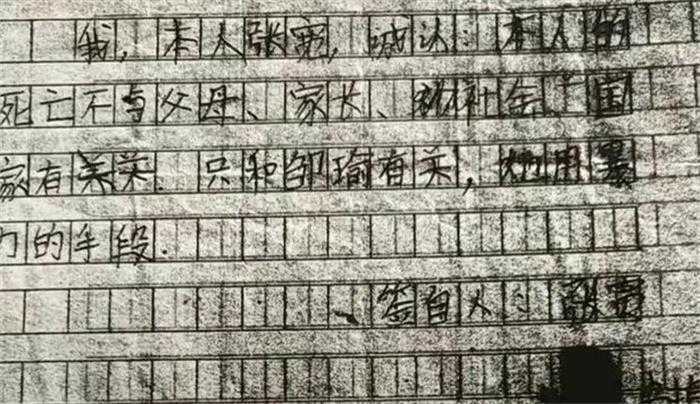 我,本人张宽,诚认:本人的
死亡不与父母、家长、社会、国
家有关。只和邹瑜有关,她用暴
力的手段.
签自人:张宽